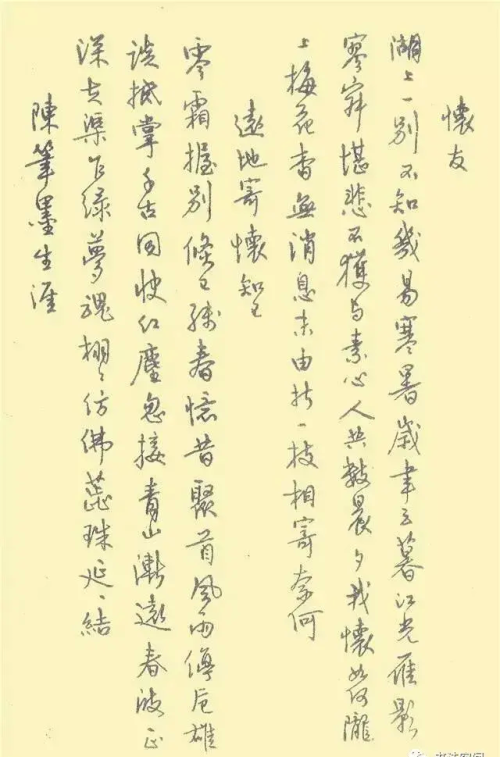 懷友
湖上一别不知幾易寒暑歲聿云暮江光雁影
寥寂堪悲不獲与素心人共數晨夕我懷如何隴
上梅花杳無消息末由折一枝相寄奈何
遠地寄懷知己
零霜握别倏已残春憶昔聚首風雨傳卮雄
談抵掌千古同快红塵忽接青山漸遠春波正
深去渠乍绿夢魂栩々仿佛蕊珠延々結
陳筆墨生涯